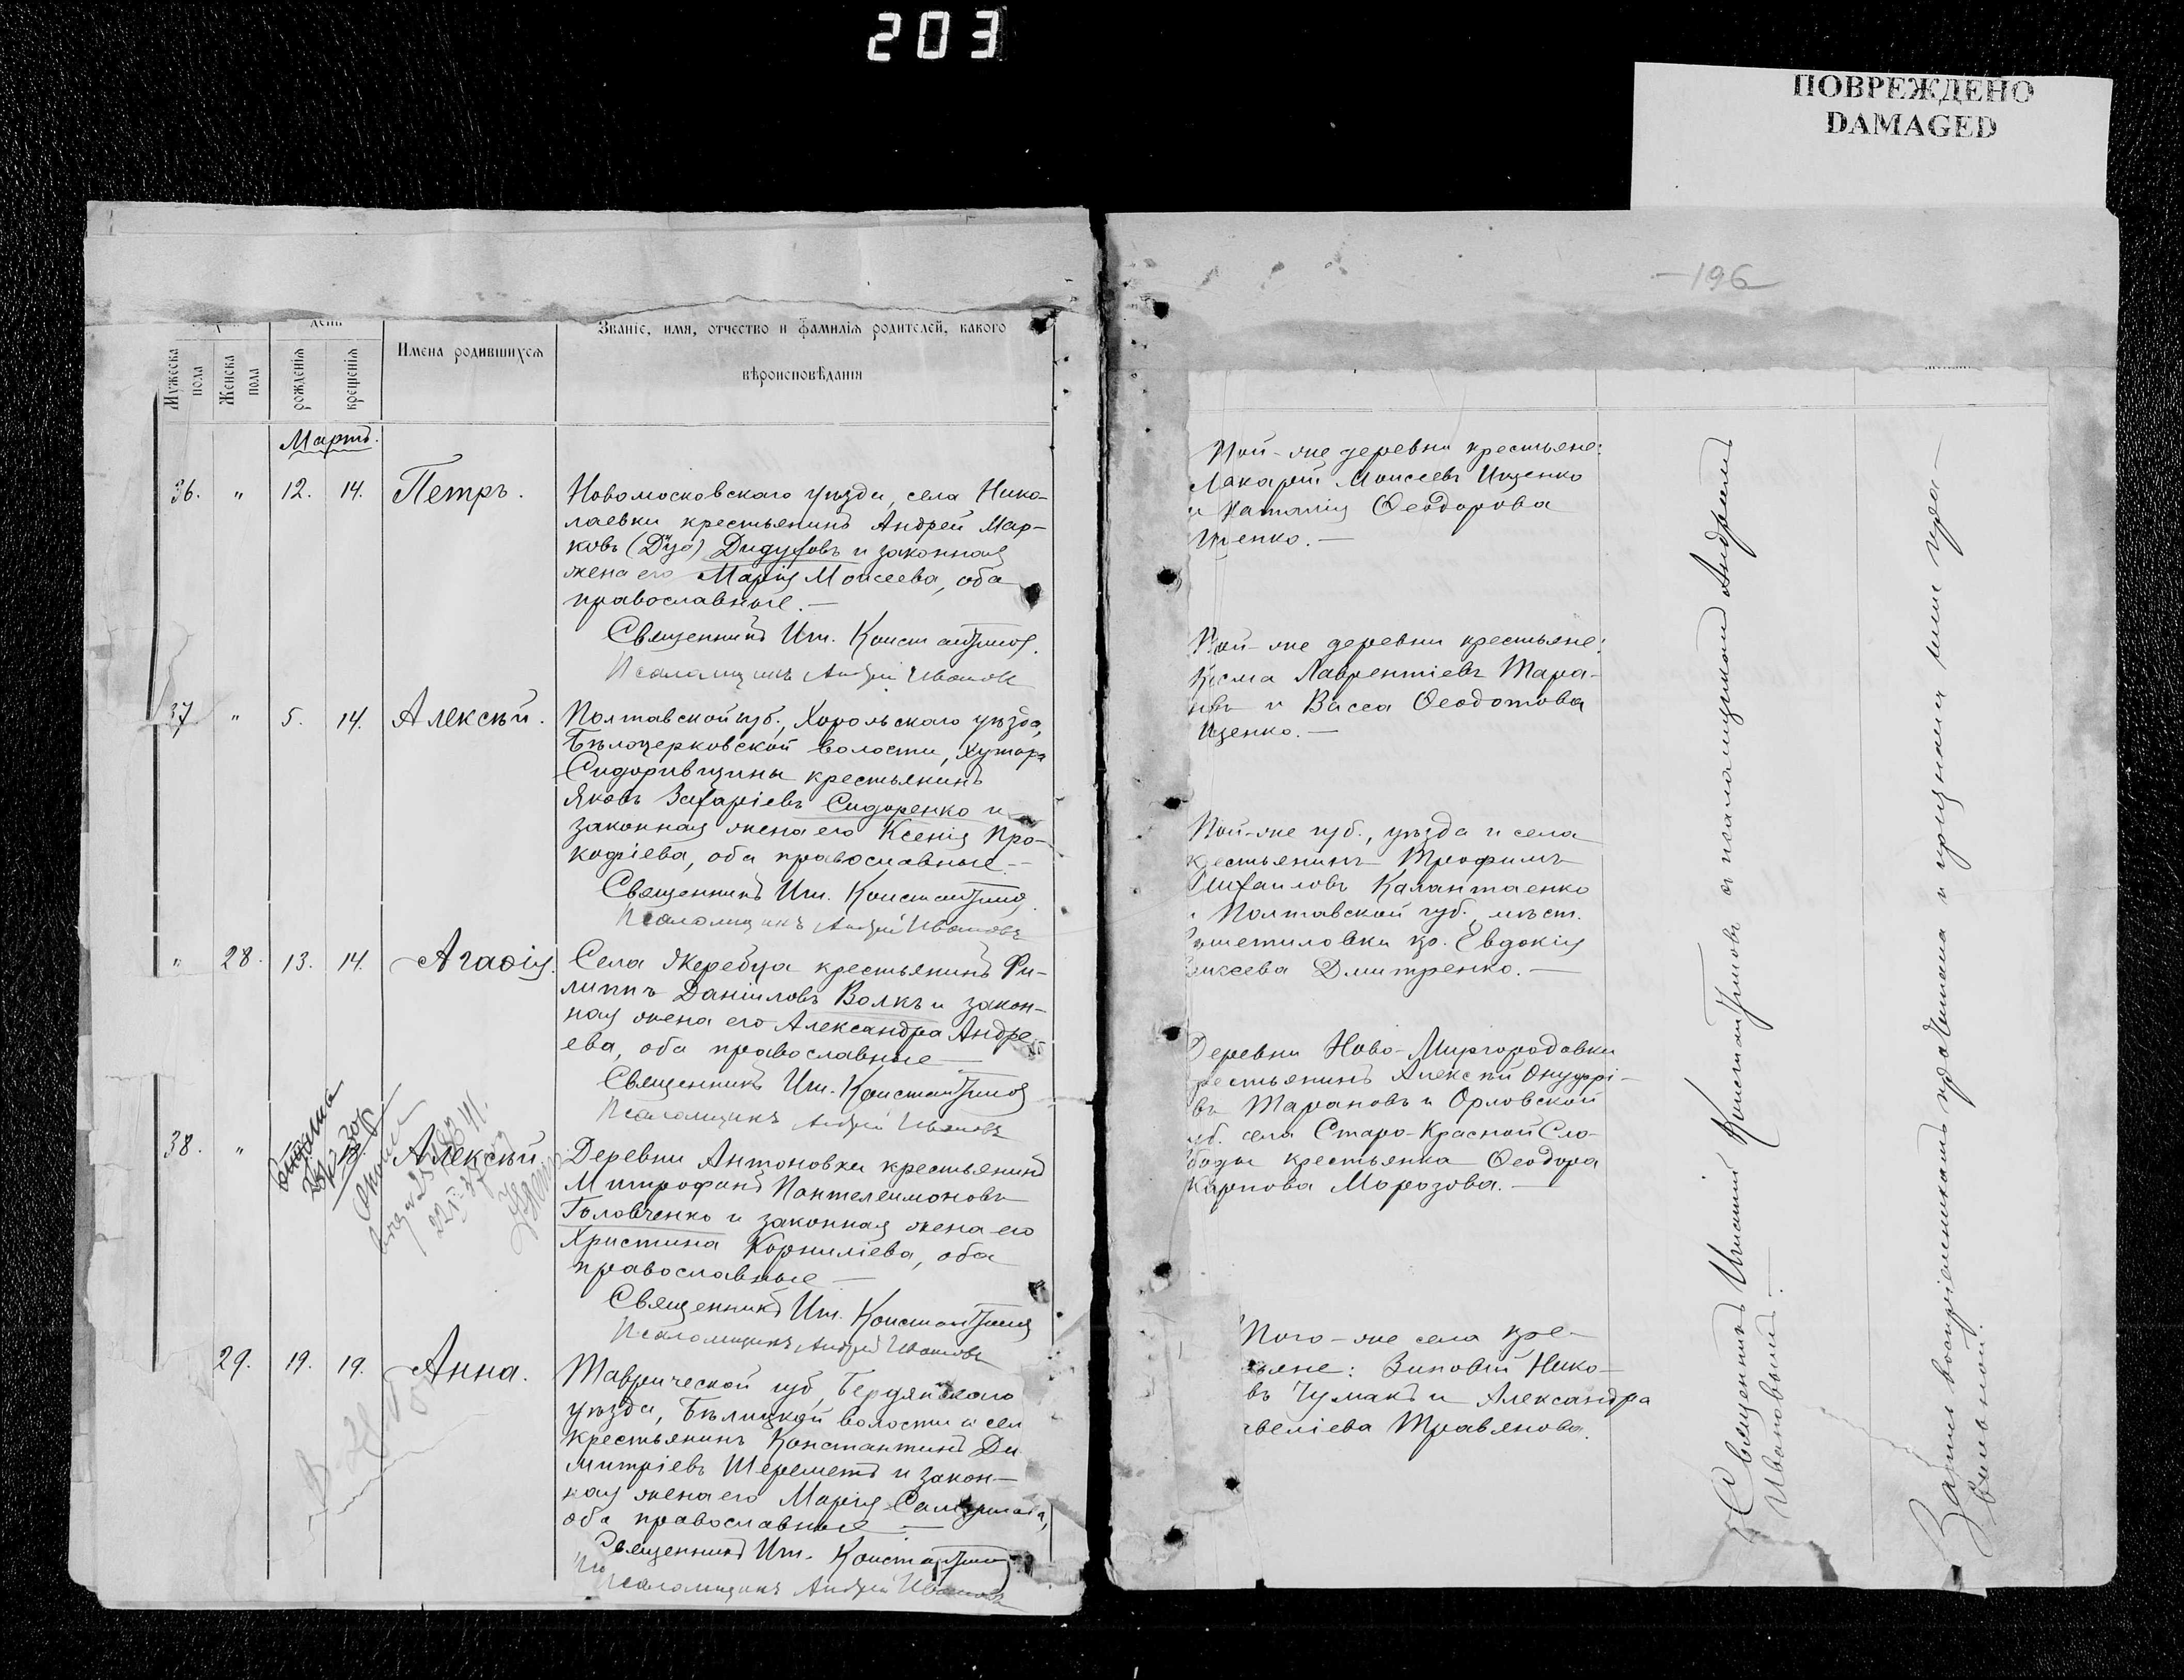 203
ПОВРЕЖДЕНО
DAMAGED
196
день
Мужеска пола
Женска пола
рожденія
крещенія
Имена родившихся
Званіе, имя, отчество и фамилія родителей, какого
вѣроисповѣданія
Мартъ.
36. " 12. 14. Петръ.
Новомосковскаго уѣзда, села Нико-
лаевки крестьянинъ Андрей Мар-
ковъ Дидуховъ и законная
жена его Марія Моисеева, оба
православные. —
Священникъ Игн. Константиновъ
Псаломщикъ Андрей Ивановъ
37 " 5. 14. Алексѣй.
Полтавской губ., Хорольскаго уѣзда,
Бѣлоцерковской волости, Хутора
Сидорившины крестьянинъ
Яковъ Захаріевъ Сидоренко и
законная жена его Ксенія Про-
кофіева, оба православные —
Священникъ Игн. Константиновъ
Псаломщикъ Андрей Ивановъ
" 28. 13. 14. Агаѳія.
Села Жеребца крестьянинъ Фи-
липпъ Даніиловъ Волкъ и закон-
ная жена его Александра Андре-
ева, оба православные —
Священникъ Игн. Константиновъ
Псаломщикъ Андрей Ивановъ
38. " Алексѣй.
Деревни Антоновки крестьянинъ
Митрофанъ Пантелеимоновъ
Головченко и законная жена его
Христина Корниліева, оба
православные —
Священникъ Игн. Константиновъ
Псаломщикъ Андрей Ивановъ
29. 19. 19. Анна.
Таврической губ, Бердянскаго
уѣзда, Бѣлицкой волости и села
крестьянинъ Константинъ Ди
митріевъ Шереметъ и закон-
ная жена его Марія
оба православные —
Священникъ Игн. Константиновъ
Псаломщикъ Андрей Ивановъ
Той-же деревни крестьяне:
Макарій Моисеевъ Ищенко
и Наталія Ѳеодорова
щенко. —
Той-же деревни крестьяне:
Косма Лаврентіевъ Тара-
новъ и Васса Ѳеодотова
Ищенко. —
Той-же губ., уѣзда и села
крестьянинъ Трофимъ
Михаиловъ Калантаенко
и Полтавской губ., мѣст.
Решетиловки кр. Евдокія
Дмитренко. —
Деревни Ново-Миргородовки
крестьянинъ Алексѣй Онуфрі-
евъ Тарановъ и Орловской
губ. села Старо-Красной Сло-
боды крестьянка Ѳеодора
Карпова Морозова. —
Того-же села кре-
стьяне: Зиновій Нико-
въ Чумакъ и Александра
веліева Травянова.
Священникъ Игнатій Константиновъ съ псаломщикомъ Андреемъ
Ивановымъ. —